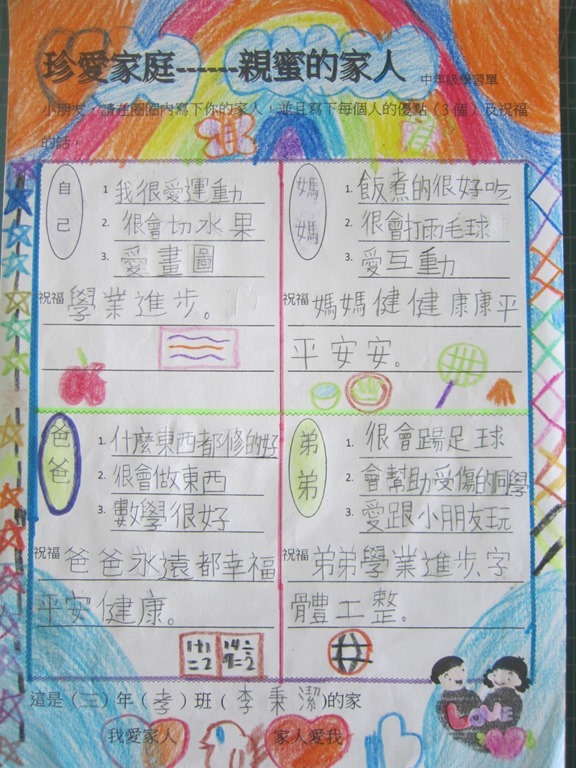 珍愛家庭------親蜜的家人 中年級學習單
小朋友，請在圈圈內寫下你的家人，並且寫下每個人的優點（3個）及祝福
的話。
自己
1. 我很愛運動
2. 很會切水果
3. 愛畫圖
祝福 學業進步。
媽媽
1. 飯煮的很好吃
2. 很會打雨毛球
3. 愛互動
祝福 媽媽健健康康平
平安安。
爸爸
1. 什麼東西都修的好
2. 很會做東西
3. 數學很好
祝福 爸爸永遠都幸福
平安健康。
1+1 14÷
=2 7=2
弟弟
1. 很會踢足球
2. 會幫助受傷的同學
3. 愛跟小朋友玩
祝福 弟弟學業進步、字
體工整。
這是（三）年（孝）班（李秉潔）的家
LOVE
我愛家人 家人愛我